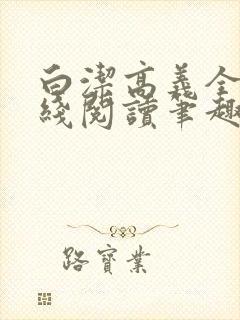 白潔高義全
綫閱讀筆趣
路寶業